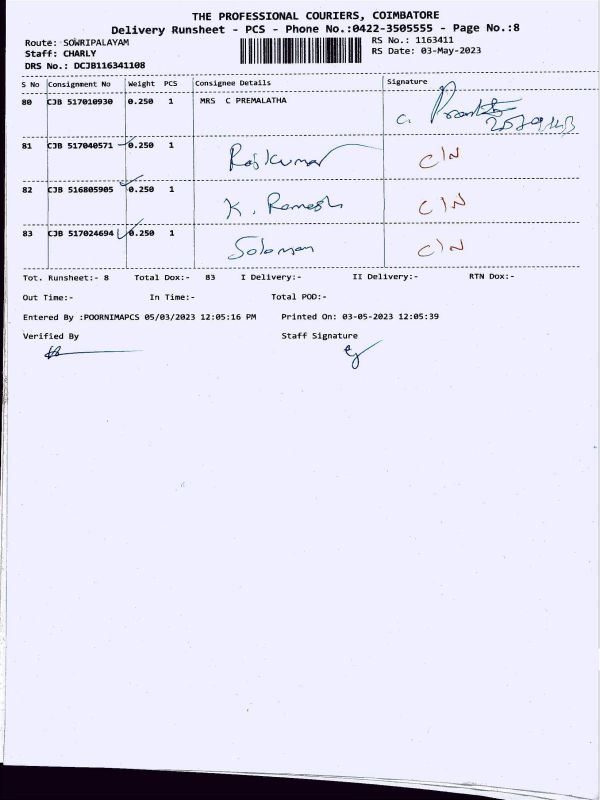 THE PROFESSIONAL COURIERS, COIMBATORE
Delivery Runsheet - PCS - Phone No.:0422-3505555 - Page No.:8
Route: SOWRIPALAYAM RS No.: 1163411
Staff: CHARLY RS Date: 03-May-2023
DRS No.: DCJB116341108
S No Consignment No Weight PCS Consignee Details Signature
80 CJB 517010930 0.250 1 MRS C PREMALATHA C.
81 CJB 517040571 0.250 1 Rajkumar C/N
82 CJB 516805905 0.250 1 K. Ramesh C/N
83 CJB 517024694 0.250 1 Soloman C/N
Tot. Runsheet:- 8 Total Dox:- 83 I Delivery:- II Delivery:- RTN Dox:-
Out Time:- In Time:- Total POD:-
Entered By :POORNIMAPCS 05/03/2023 12:05:16 PM Printed On: 03-05-2023 12:05:39
Verified By Staff Signature